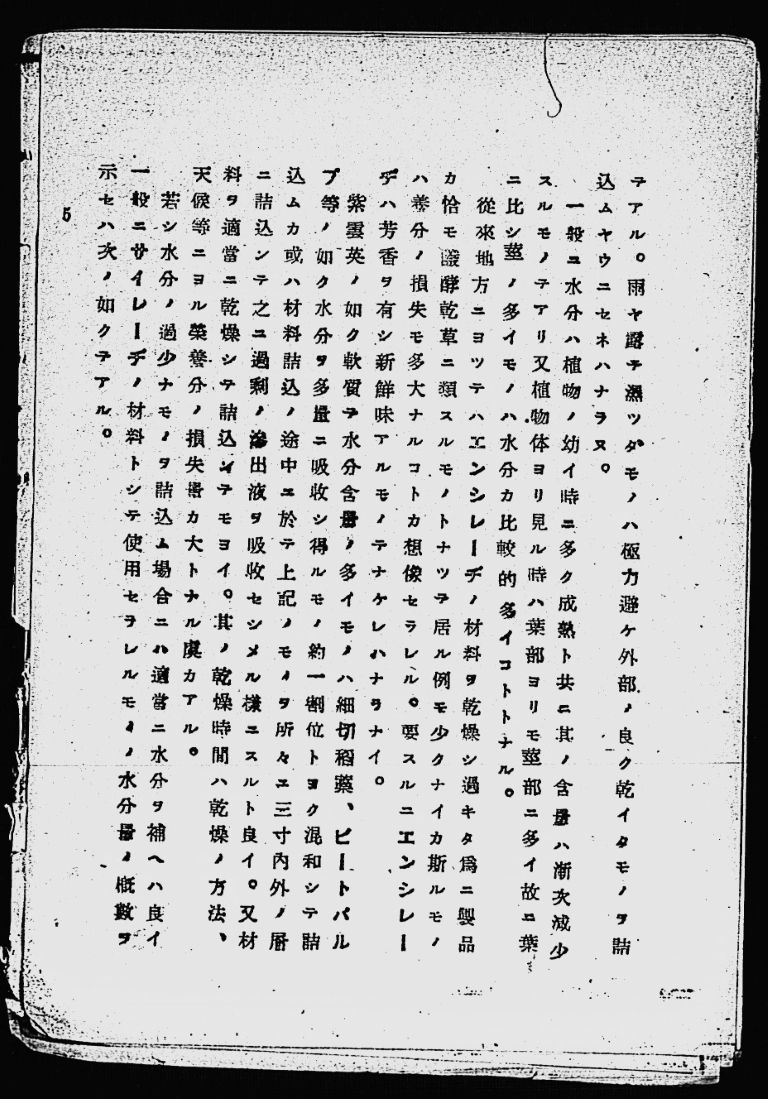 テアル。雨ヤ露デ濕ツタモノハ極力避ケ外部ノ良ク乾イタモノヲ詰
込ムヤウニセネハナラヌ。
一般ニ水分ハ植物ノ幼イ時ニ多ク成熟ト共ニ其ノ含量ハ漸次減少
スルモノテアリ又植物体ヨリ見ル時ハ葉部ヨリモ莖部ニ多イ故ニ葉
ニ比シ莖ノ多イモノハ水分カ比較的多イコトトナル。
從來地方ニヨツテハエンシレーヂノ材料ヲ乾燥シ過キタ爲ニ製品
カ恰モ醱酵乾草ニ類スルモノトナツテ居ル例モ少クナイカ斯ルモノ
ハ養分ノ損失モ多大ナルコトカ想像セラレル。要スルニエンシレー
ヂハ芳香ヲ有シ新鮮味アルモノテナケレハナラナイ。
紫雲英ノ如ク軟質デ水分含量ノ多イモノハ細切稻藁、ビートパル
プ等ノ如ク水分ヲ多量ニ吸收シ得ルモノ約一割位トヨク混和シテ詰
込ムカ或ハ材料詰込ノ途中ニ於テ上記ノモノヲ所々ニ三寸内外ノ層
ニ詰込ンテ之ニ過剩ノ滲出液ヲ吸收セシメル樣ニスルト良イ。又材
料ヲ適當ニ乾燥シテ詰込ンテモヨイ。其ノ乾燥時間ハ乾燥ノ方法、
天候等ニヨル榮養分ノ損失量カ大トナル虞カアル。
若シ水分ノ過少ナモノヲ詰込ム場合ニハ適當ニ水分ヲ補ヘハ良イ
一般ニサイレーヂノ材料トシテ使用セラレルモノノ水分量ノ概數ヲ
示セハ次ノ如クテアル。
5